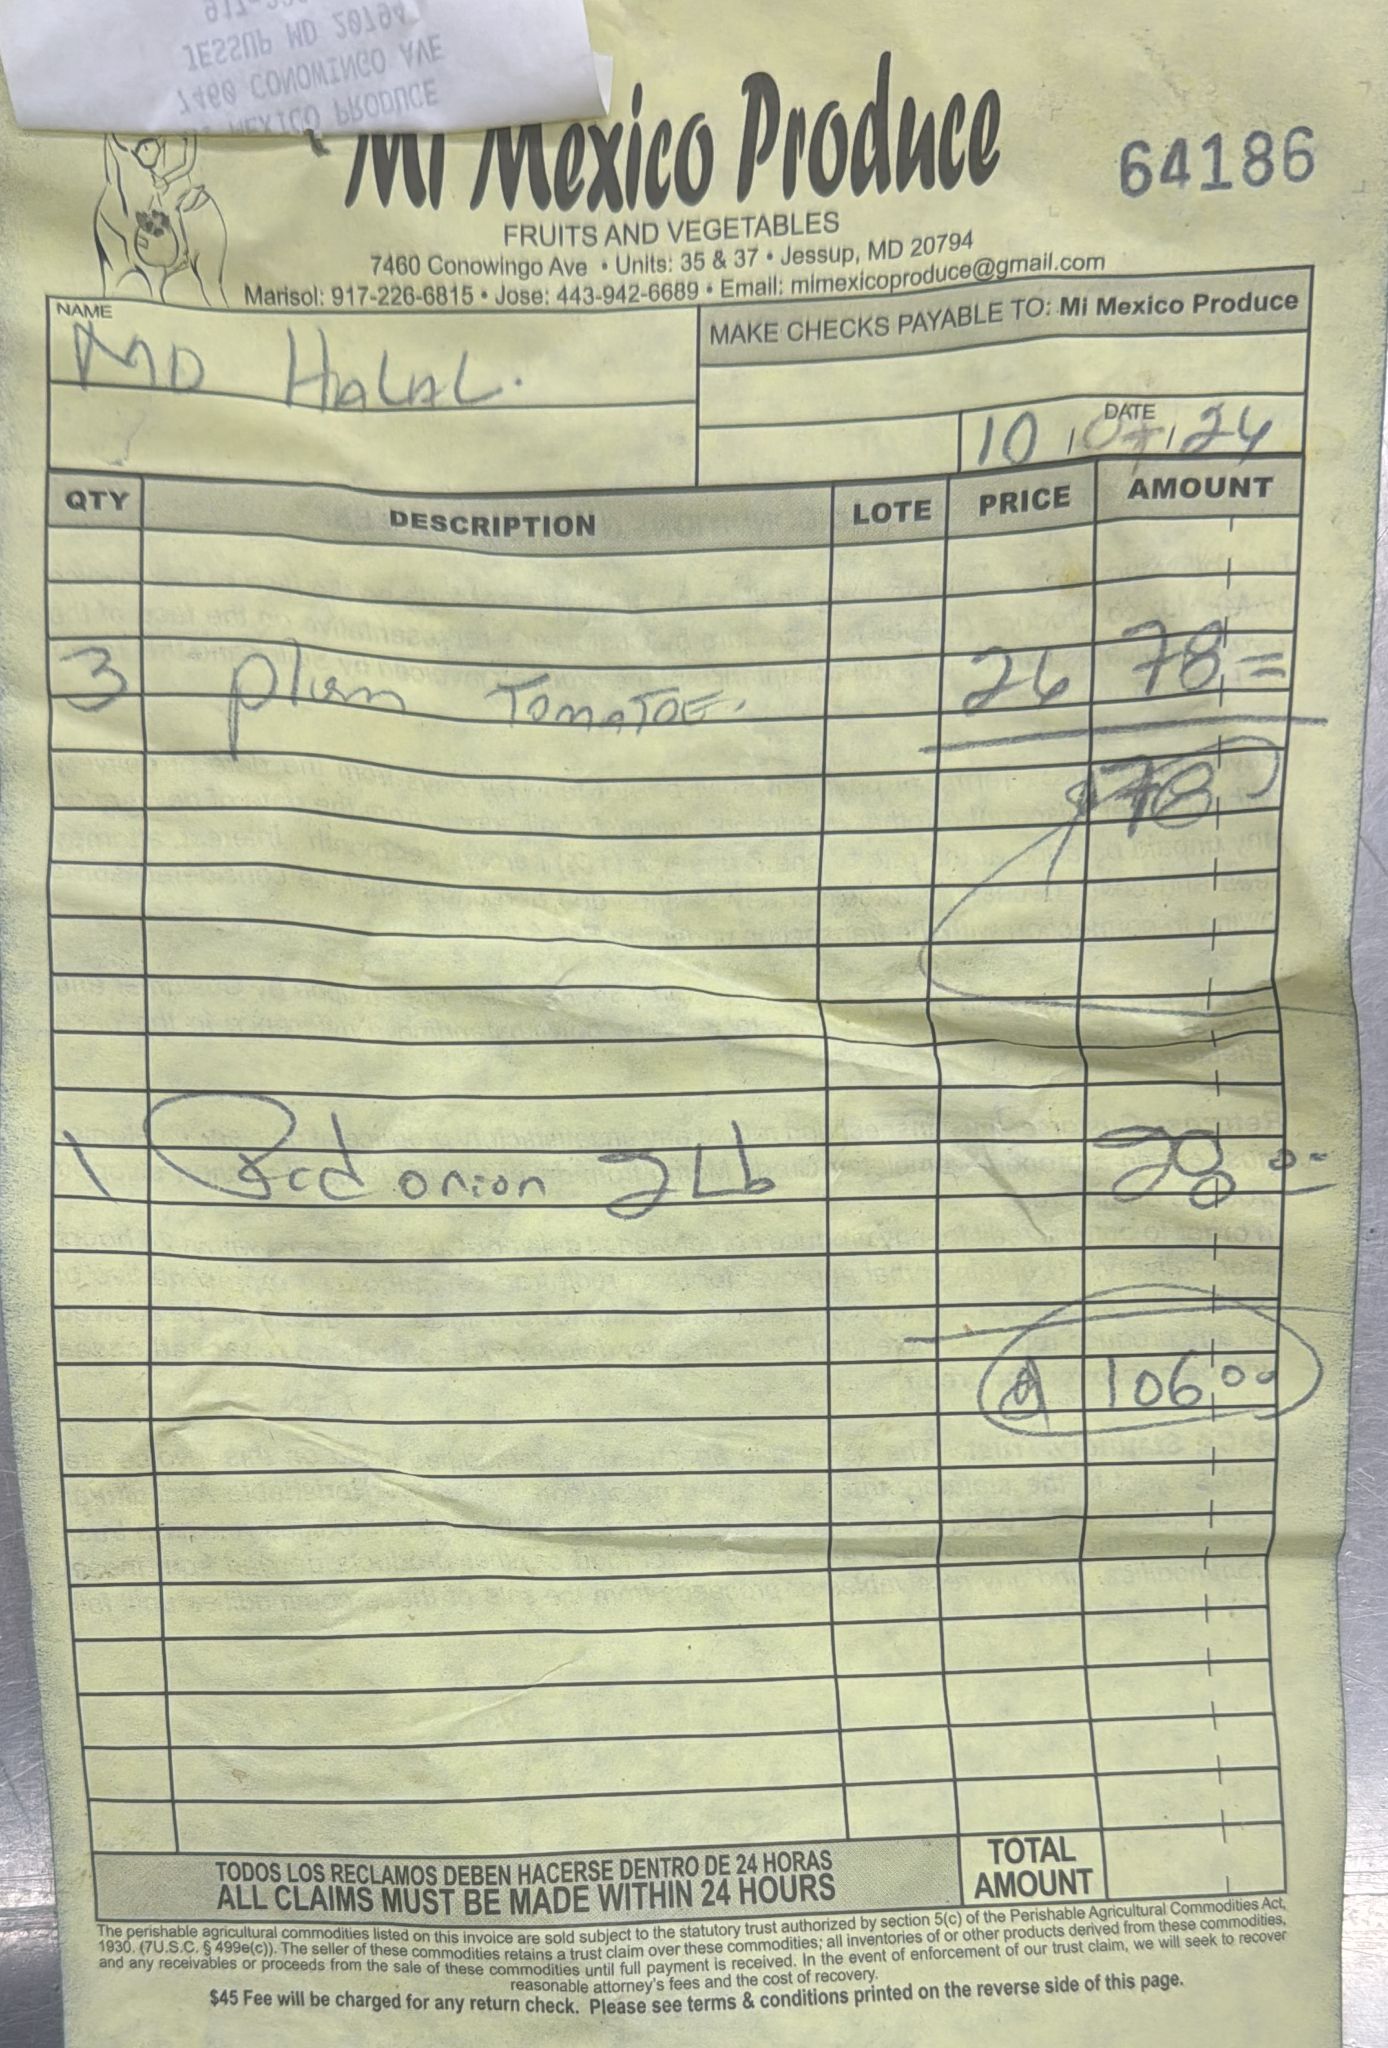 JESSUP MD 20794
7460 CONOWINGO AVE
MEXICO PRODUCE
Mi Mexico Produce
64186
FRUITS AND VEGETABLES
7460 Conowingo Ave • Units: 35 & 37 • Jessup, MD 20794
Marisol: 917-226-6815 • Jose: 443-942-6689 • Email: mimexicoproduce@gmail.com
NAME
MD HALAL.
MAKE CHECKS PAYABLE TO: Mi Mexico Produce
DATE
10/07/24
QTY DESCRIPTION LOTE PRICE AMOUNT
3 plum TOMATOE. 26 78=
$78
1 Red onion 2Lb 00
$ 106.00
TODOS LOS RECLAMOS DEBEN HACERSE DENTRO DE 24 HORAS
ALL CLAIMS MUST BE MADE WITHIN 24 HOURS
TOTAL
AMOUNT
The perishable agricultural commodities listed on this invoice are sold subject to the statutory trust authorized by section 5(c) of the Perishable Agricultural Commodities Act,
1930. (7U.S.C. § 499e(c)). The seller of these commodities retains a trust claim over these commodities; all inventories of or other products derived from these commodities,
and any receivables or proceeds from the sale of these commodities until full payment is received. In the event of enforcement of our trust claim, we will seek to recover
reasonable attorney's fees and the cost of recovery.
$45 Fee will be charged for any return check. Please see terms & conditions printed on the reverse side of this page.